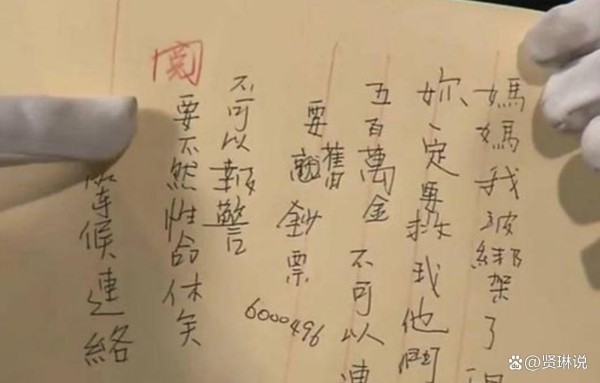 媽媽我被綁架了
妳一定要救我他們
五百萬金 不可以連
要舊鈔票
6000496
不可以報警
要不然性命休矣
等候連絡
閱
@贤琳说